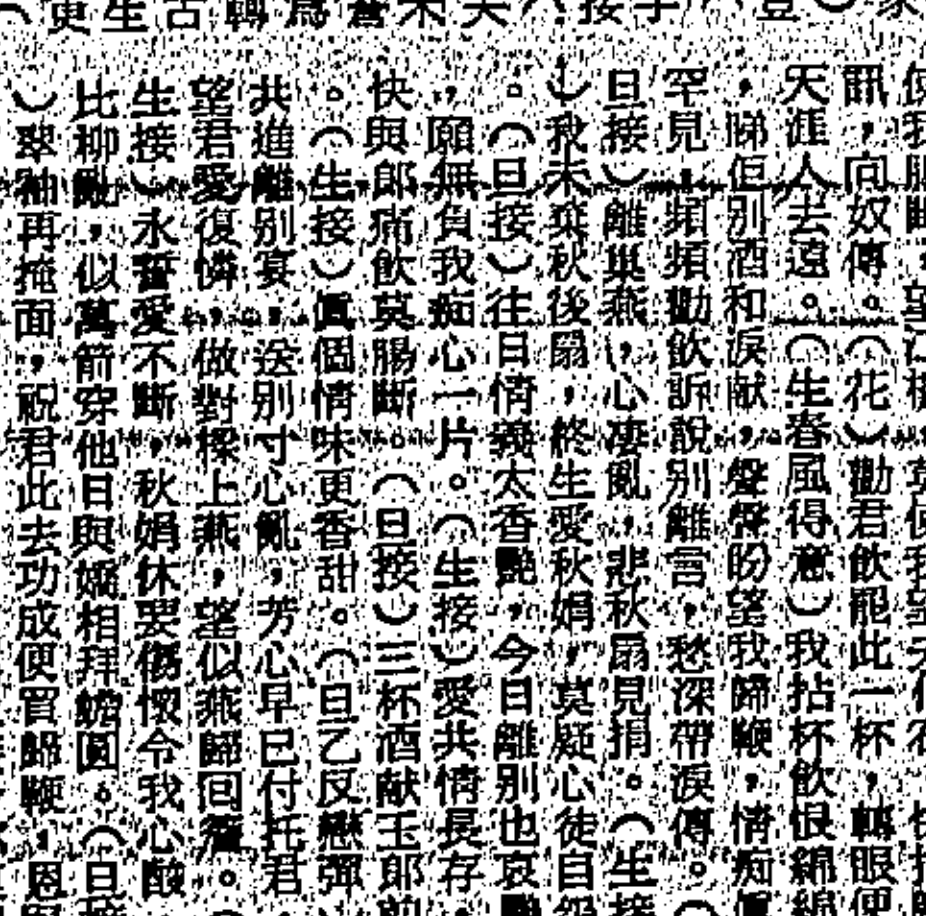 更生古轉爲蒼木
訊，向奴傳。（花）勸君飲罷此一杯，轉眼便
天涯人去遠。（生春風得意）我拈杯飲恨綿綿
，睇佢別酒和淚献，聲聲盼望我歸鞭，情痴眞
罕見，頻頻勸飲訴說別離言，愁深帶淚傳。（
旦接）離巢燕，心凄亂，悲秋扇見捐。（生接
）秋未棄秋後扇，終生愛秋娟，莫疑心徒自怨
。（旦接）往日情義太香艷，今日離別也哀艷
，願無負我痴心一片。（生接）愛共情長存。
快與郎痛飲莫腸斷。（旦接）三杯酒献玉郎前
。（生接）眞個情味更香甜。（旦乙反戀彈
共進離別宴，送別寸心亂，芳心早已付托君
望君愛復憐，做對樑上燕，望似燕歸回舊。（
生接）永誓愛不斷，秋娟休要傷懷令我心酸
比柳亂，似萬箭穿他日與嬌相拜蟾圓。（旦接
）翠袖再掩面，祝君此去功成便買歸鞭，恩